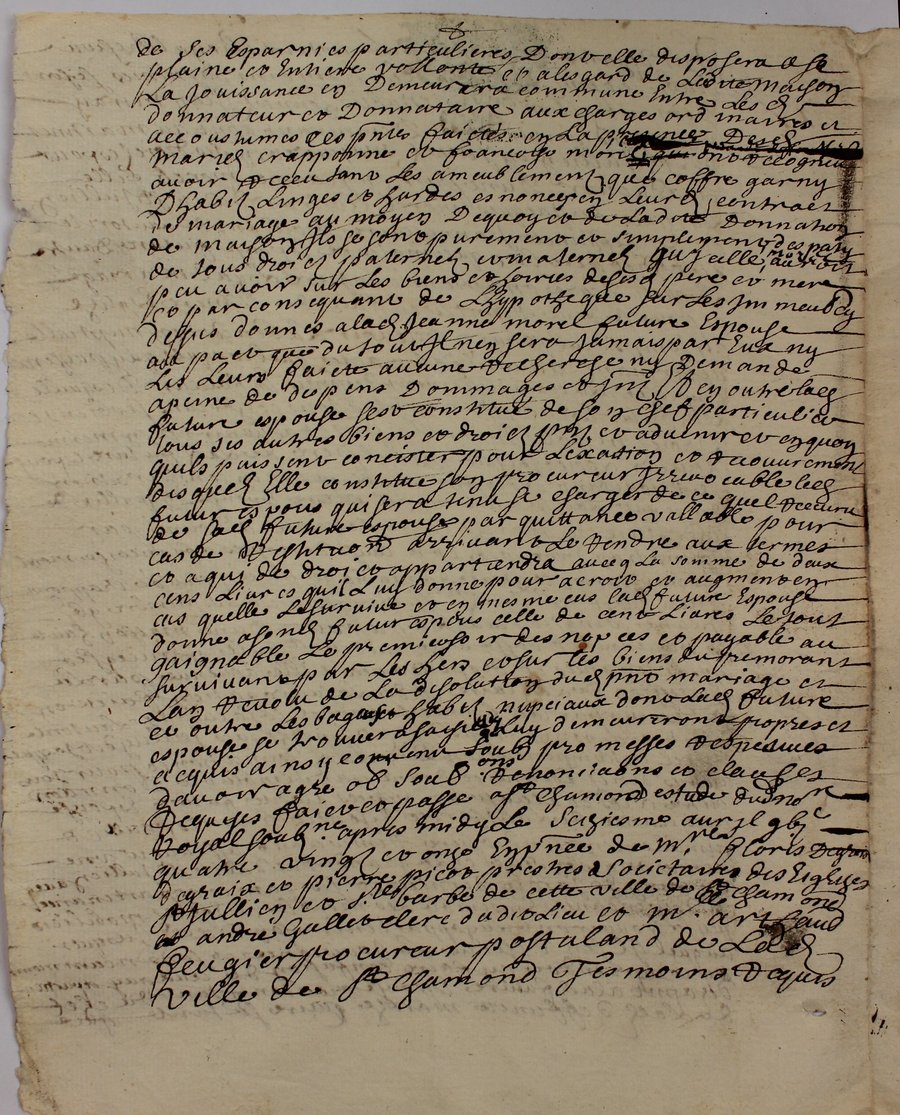 de ses esparnies particulieres Dont elle disposera a sa
plaine et Entiere vollonté et alesgard de Ladite maison
La Jouissance en Demeurera commune Entre Les d
donnateur et Donnataire aux charges ordinaires et
accoustumes Les pntes faictes en La presence Desd
mariés crapponne et francoise morel qui ont Recogneu
avoir Receu tant Les ameublement que coffre garny
Dhabit Linges et hardes enoncés en Leurd contract
de mariage au moyen Dequoy et de Ladite Donnation
de maison Ils se sont purement et simplement despartis
de tous droicts paternels et maternels quelle
peu avoir sur Les biens et hoiries desesd pere et mere
et par consequant de Lhypotheque sur Les Immeubles cy
dessus donnes alad Jeanne morel future Espouse
au pact que du tout Il nen sera Jamais par Eux ny
Les Leurs faicte aucune Recherche ny Demande
apeine de despens Dommages et Int Et en outre lad
future espouse sest constitué de son chef particulier
tous ses autres biens et droicts pnts et advenir et en quoy
quils puissent concister pour Lexaction et Recouvrement
desquels Elle constitue son procureur Irrevocable led
futur espoux qui sera tenu se charger de ce quel Recevra
de lad future espouse par quittance vallable pour
cas de Restitution arrivant Le Rendre aux termes
et a qui de droict appartiendra avecq La somme de deux
cens Livres quil Luy donne pour acroit et augment en
cas quelle Lesurvive et en mesme cas lad future Espouse
donne asond futur espoux celle de cent Livres Le tout
gaignable Le premier soir des nopces et payable au
survivant par Les hers et sur les biens du premorant
Lan Revolu de La disolution dud pnt mariage et
et outre Les bagues et habits nupciaux dont Lad future
espouse se trouvera saisie Luy demeureront propres et
acquis ainsy convenu soubs promesses Respectives
davoir agre ob soub Renonciaons et clauses
Requises faict et passe a St Chamond estude dud nore
Royal soubne apres midy Le Seiziesme avril gbjc
quatre vingt et onze En pnce de mre floris
degraix et pierre picot prestres Societaires des Esglises
St Jullien et Ste barbe de cette ville de St Chamond
andré Gallet clerc dudit Lieu et mr artaud
feugier procureur postaland de Lad
ville de St Chamond Tesmoins Requis